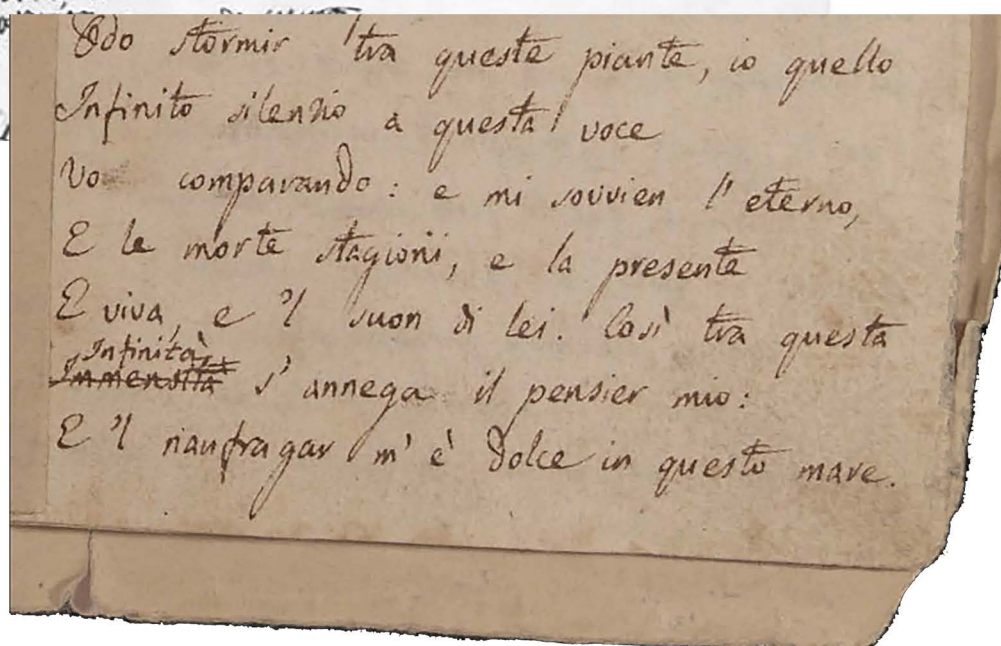 Odo stormir tra queste piante, io quello
Infinito silenzio a questa voce
Vo comparando: e mi sovvien l'eterno,
E le morte stagioni, e la presente
E viva, e 'l suon di lei. Così tra questa
Infinità
Immensità s'annega il pensier mio:
E 'l naufragar m'è dolce in questo mare.